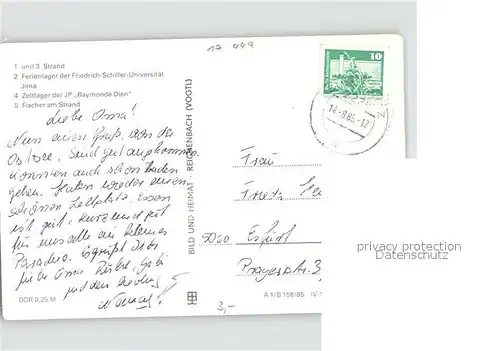 17 449
1 und 3 Strand
2 Ferienlager der Friedrich-Schiller-Universität
Jena
4 Zeltlager der JP „Raymonde Dien"
5 Fischer am Strand
Liebe Oma!
Nun einen Gruß von der
Ostsee. Sind gut angekommen
konnten auch schon baden
gehen. Haben wieder einen
schönen Zeltplatz. Essen
ist gut, kurz und gut
für uns alle ein kleines
Paradies. Es grüßt Dich
liebe Oma
und
DDR 0,25 M
BILD UND HEIMAT · REICHENBACH (VOGTL)
A 1/B 158/85 IV-1
10
14.-8.85-12
Frau
5060 Erfurt
Pragerstr. 3
3,-
privacy protection
Datenschutz